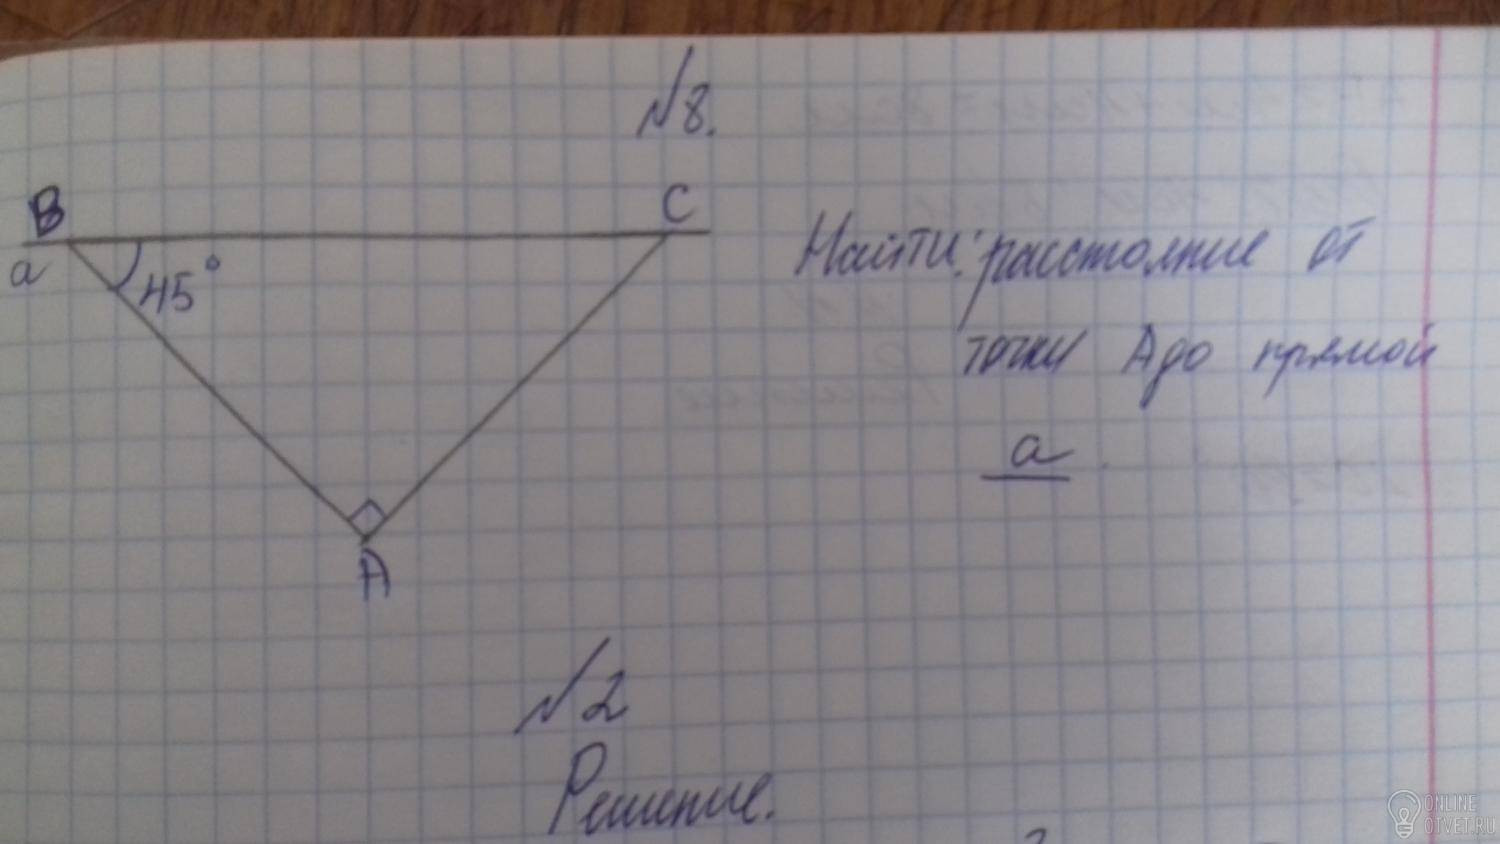 №8.
B
C
a
45°
A
Найти: расстояние от
точки А до прямой
a
№2
Решение.
ONLINE
OTVET.RU